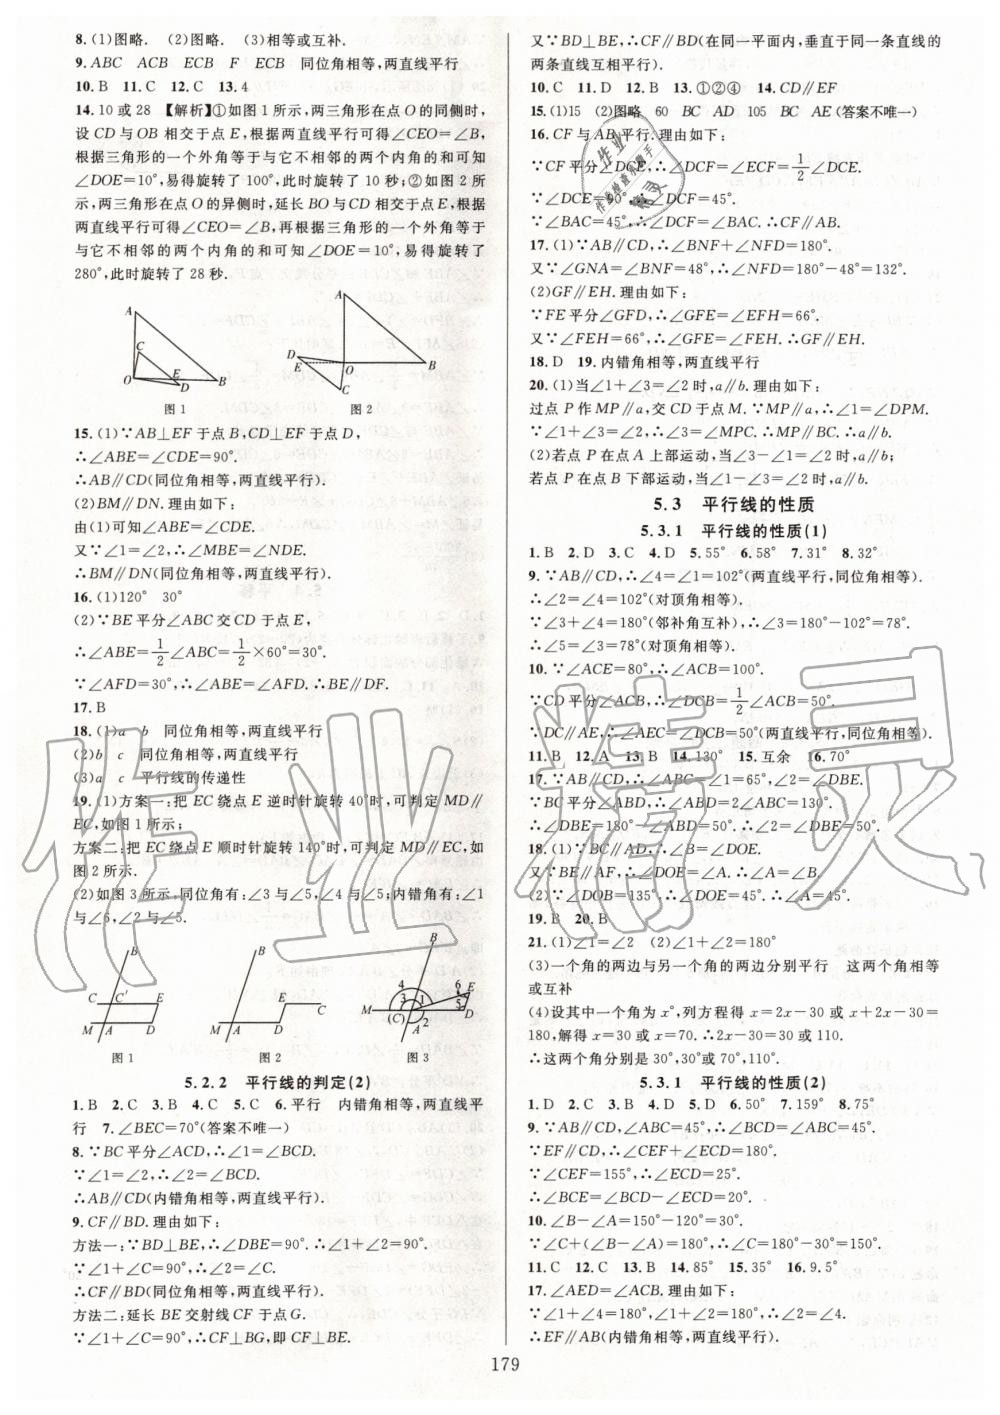 8. (1)图略. (2)图略. (3)相等或互补.
9. ABC ACB ECB F ECB 同位角相等,两直线平行
10. B 11. C 12. C 13. 4
14. 10或28 【解析】①如图1所示,两三角形在点O的同侧时,
设CD与OB相交于点E,根据两直线平行可得∠CEO=∠B,
根据三角形的一个外角等于与它不相邻的两个内角的和可知
∠DOE=10°,易得旋转了100°,此时旋转了10秒;②如图2所
示,两三角形在点O的异侧时,延长BO与CD相交于点E,根据
两直线平行可得∠CEO=∠B,再根据三角形的一个外角等于
与它不相邻的两个内角的和可知∠DOE=10°,易得旋转了
280°,此时旋转了28秒.
A
C
E
O
D
B
图1
A
D
E
O
B
C
图2
15. (1)∵AB⊥EF于点B,CD⊥EF于点D,
∴∠ABE=∠CDE=90°.
∴AB∥CD(同位角相等,两直线平行).
(2)BM∥DN.理由如下:
由(1)可知∠ABE=∠CDE.
又∵∠1=∠2,∴∠MBE=∠NDE.
∴BM∥DN(同位角相等,两直线平行).
16. (1)120° 30°
(2)∵BE平分∠ABC交CD于点E,
∴∠ABE=1/2∠ABC=1/2×60°=30°.
∵∠AFD=30°,∴∠ABE=∠AFD.∴BE∥DF.
17. B
18. (1)a b 同位角相等,两直线平行
(2)b c 同位角相等,两直线平行
(3)a c 平行线的传递性
19. (1)方案一:把EC绕点E逆时针旋转40°时,可判定MD∥
EC,如图1所示;
方案二:把EC绕点E顺时针旋转140°时,可判定MD∥EC,如
图2所示.
(2)如图3所示,同位角有:∠3与∠5,∠4与∠5;内错角有:∠1
与∠6,∠2与∠5.
B
C
C′
E
M
A
D
图1
B
E
C
M
A
D
图2
B
4
3
1
6
E
M
(C)
2
5
D
A
图3
5.2.2 平行线的判定(2)
1. B 2. C 3. B 4. C 5. C 6. 平行 内错角相等,两直线平
行 7. ∠BEC=70°(答案不唯一)
8. ∵BC平分∠ACD,∴∠1=∠BCD.
∵∠1=∠2,∴∠2=∠BCD.
∴AB∥CD(内错角相等,两直线平行).
9. CF∥BD.理由如下:
方法一:∵BD⊥BE,∴∠DBE=90°.∴∠1+∠2=90°.
∵∠1+∠C=90°,∴∠2=∠C.
∴CF∥BD(同位角相等,两直线平行).
方法二:延长BE交射线CF于点G.
∵∠1+∠C=90°,∴CF⊥BG,即CF⊥BE.
又∵BD⊥BE,∴CF∥BD(在同一平面内,垂直于同一条直线的
两条直线互相平行).
10. C 11. D 12. B 13. ①②④ 14. CD∥EF
15. (1)15 (2)图略 60 BC AD 105 BC AE(答案不唯一)
16. CF与AB平行.理由如下:
∵CF平分∠DCE,∴∠DCF=∠ECF=1/2∠DCE.
∵∠DCE=90°,∴∠DCF=45°.
∵∠BAC=45°,∴∠DCF=∠BAC.∴CF∥AB.
17. (1)∵GN∥CD,∴∠BNF+∠NFD=180°.
又∵∠GNA=∠BNF=48°,∴∠NFD=180°-48°=132°.
(2)GF∥EH.理由如下:
∵FE平分∠GFD,∴∠GFE=∠EFH=66°.
又∵∠FEH=66°,∴∠GFE=∠FEH.∴GF∥EH.
18. D 19. 内错角相等,两直线平行
20. (1)当∠1+∠3=∠2时,a∥b.理由如下:
过点P作MP∥a,交CD于点M.∵MP∥a,∴∠1=∠DPM.
∵∠1+∠3=∠2,∴∠3=∠MPC.∴MP∥BC.∴a∥b.
(2)若点P在点A上部运动,当∠3-∠1=∠2时,a∥b;
若点P在点B下部运动,当∠1-∠3=∠2时,a∥b.
5.3 平行线的性质
5.3.1 平行线的性质(1)
1. B 2. D 3. C 4. D 5. 55° 6. 58° 7. 31° 8. 32°
9. ∵AB∥CD,∴∠4=∠1=102°(两直线平行,同位角相等).
∴∠2=∠4=102°(对顶角相等).
∵∠3+∠4=180°(邻补角互补),∴∠3=180°-102°=78°.
∴∠5=∠3=78°(对顶角相等).
10. ∵∠ACE=80°,∴∠ACB=100°.
∵CD平分∠ACB,∴∠DCB=1/2∠ACB=50°.
∵DC∥AE,∴∠DCB=∠E=50°(两直线平行,同位角相等).
11. B 12. A 13. B 14. 130° 15. 互余 16. 70°
17. ∵AB∥CD,∴∠ABC=∠1=65°,∠2=∠DBE.
∵BC平分∠ABD,∴∠ABD=2∠ABC=130°.
∴∠DBE=180°-∠ABD=50°.∴∠2=∠DBE=50°.
18. (1)∵BC∥AD,∴∠B=∠DOE.
又∵BE∥AF,∴∠DOE=∠A.∴∠A=∠B.
(2)∵∠DOB=135°,∴∠DOE=45°.∴∠A=45°.
19. B 20. B
21. (1)∠1=∠2 (2)∠1+∠2=180°
(3)一个角的两边与另一个角的两边分别平行 这两个角相等
或互补
(4)设其中一个角为x°,列方程得x=2x-30或x+2x-30=
180,解得x=30或x=70.∴2x-30=30或2x-30=110.
∴这两个角分别是30°,30°或70°,110°.
5.3.1 平行线的性质(2)
1. D 2. C 3. C 4. A 5. D 6. 50° 7. 159° 8. 75°
9. ∵AB∥CD,∠ABC=45°,∴∠BCD=∠ABC=45°.
∵EF∥CD,∴∠CEF+∠ECD=180°.
∵∠CEF=155°,∴∠ECD=25°.
∴∠BCE=∠BCD-∠ECD=20°.
10. ∠B-∠A=150°-120°=30°.
∵∠C+(∠B-∠A)=180°,∴∠C=180°-30°=150°.
11. C 12. C 13. D 14. 85° 15. 35° 16. 9.5°
17. ∠AED=∠ACB.理由如下:
∵∠1+∠4=180°,∠1+∠2=180°,∴∠2=∠4.
∴EF∥AB(内错角相等,两直线平行).
179
作业精灵